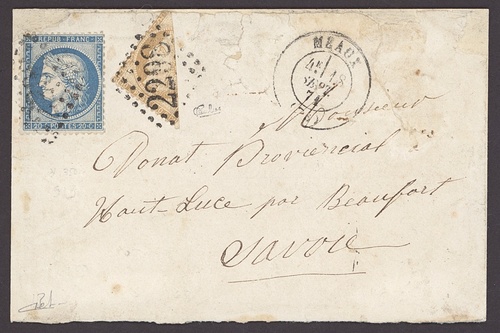 REPUB. FRANC.
20 C. POSTES 20 C.
MEAUX
SEPT
71
Monsieur
Donat Provincial
Haut-Luce par Beaufort
Savoie